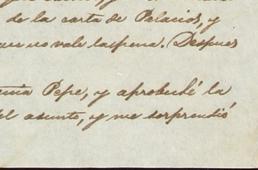 de la carta de Palacios, y
que no vale la pena. Despues
Pepe, y aprobeché la
el asunto, y me sorprendió